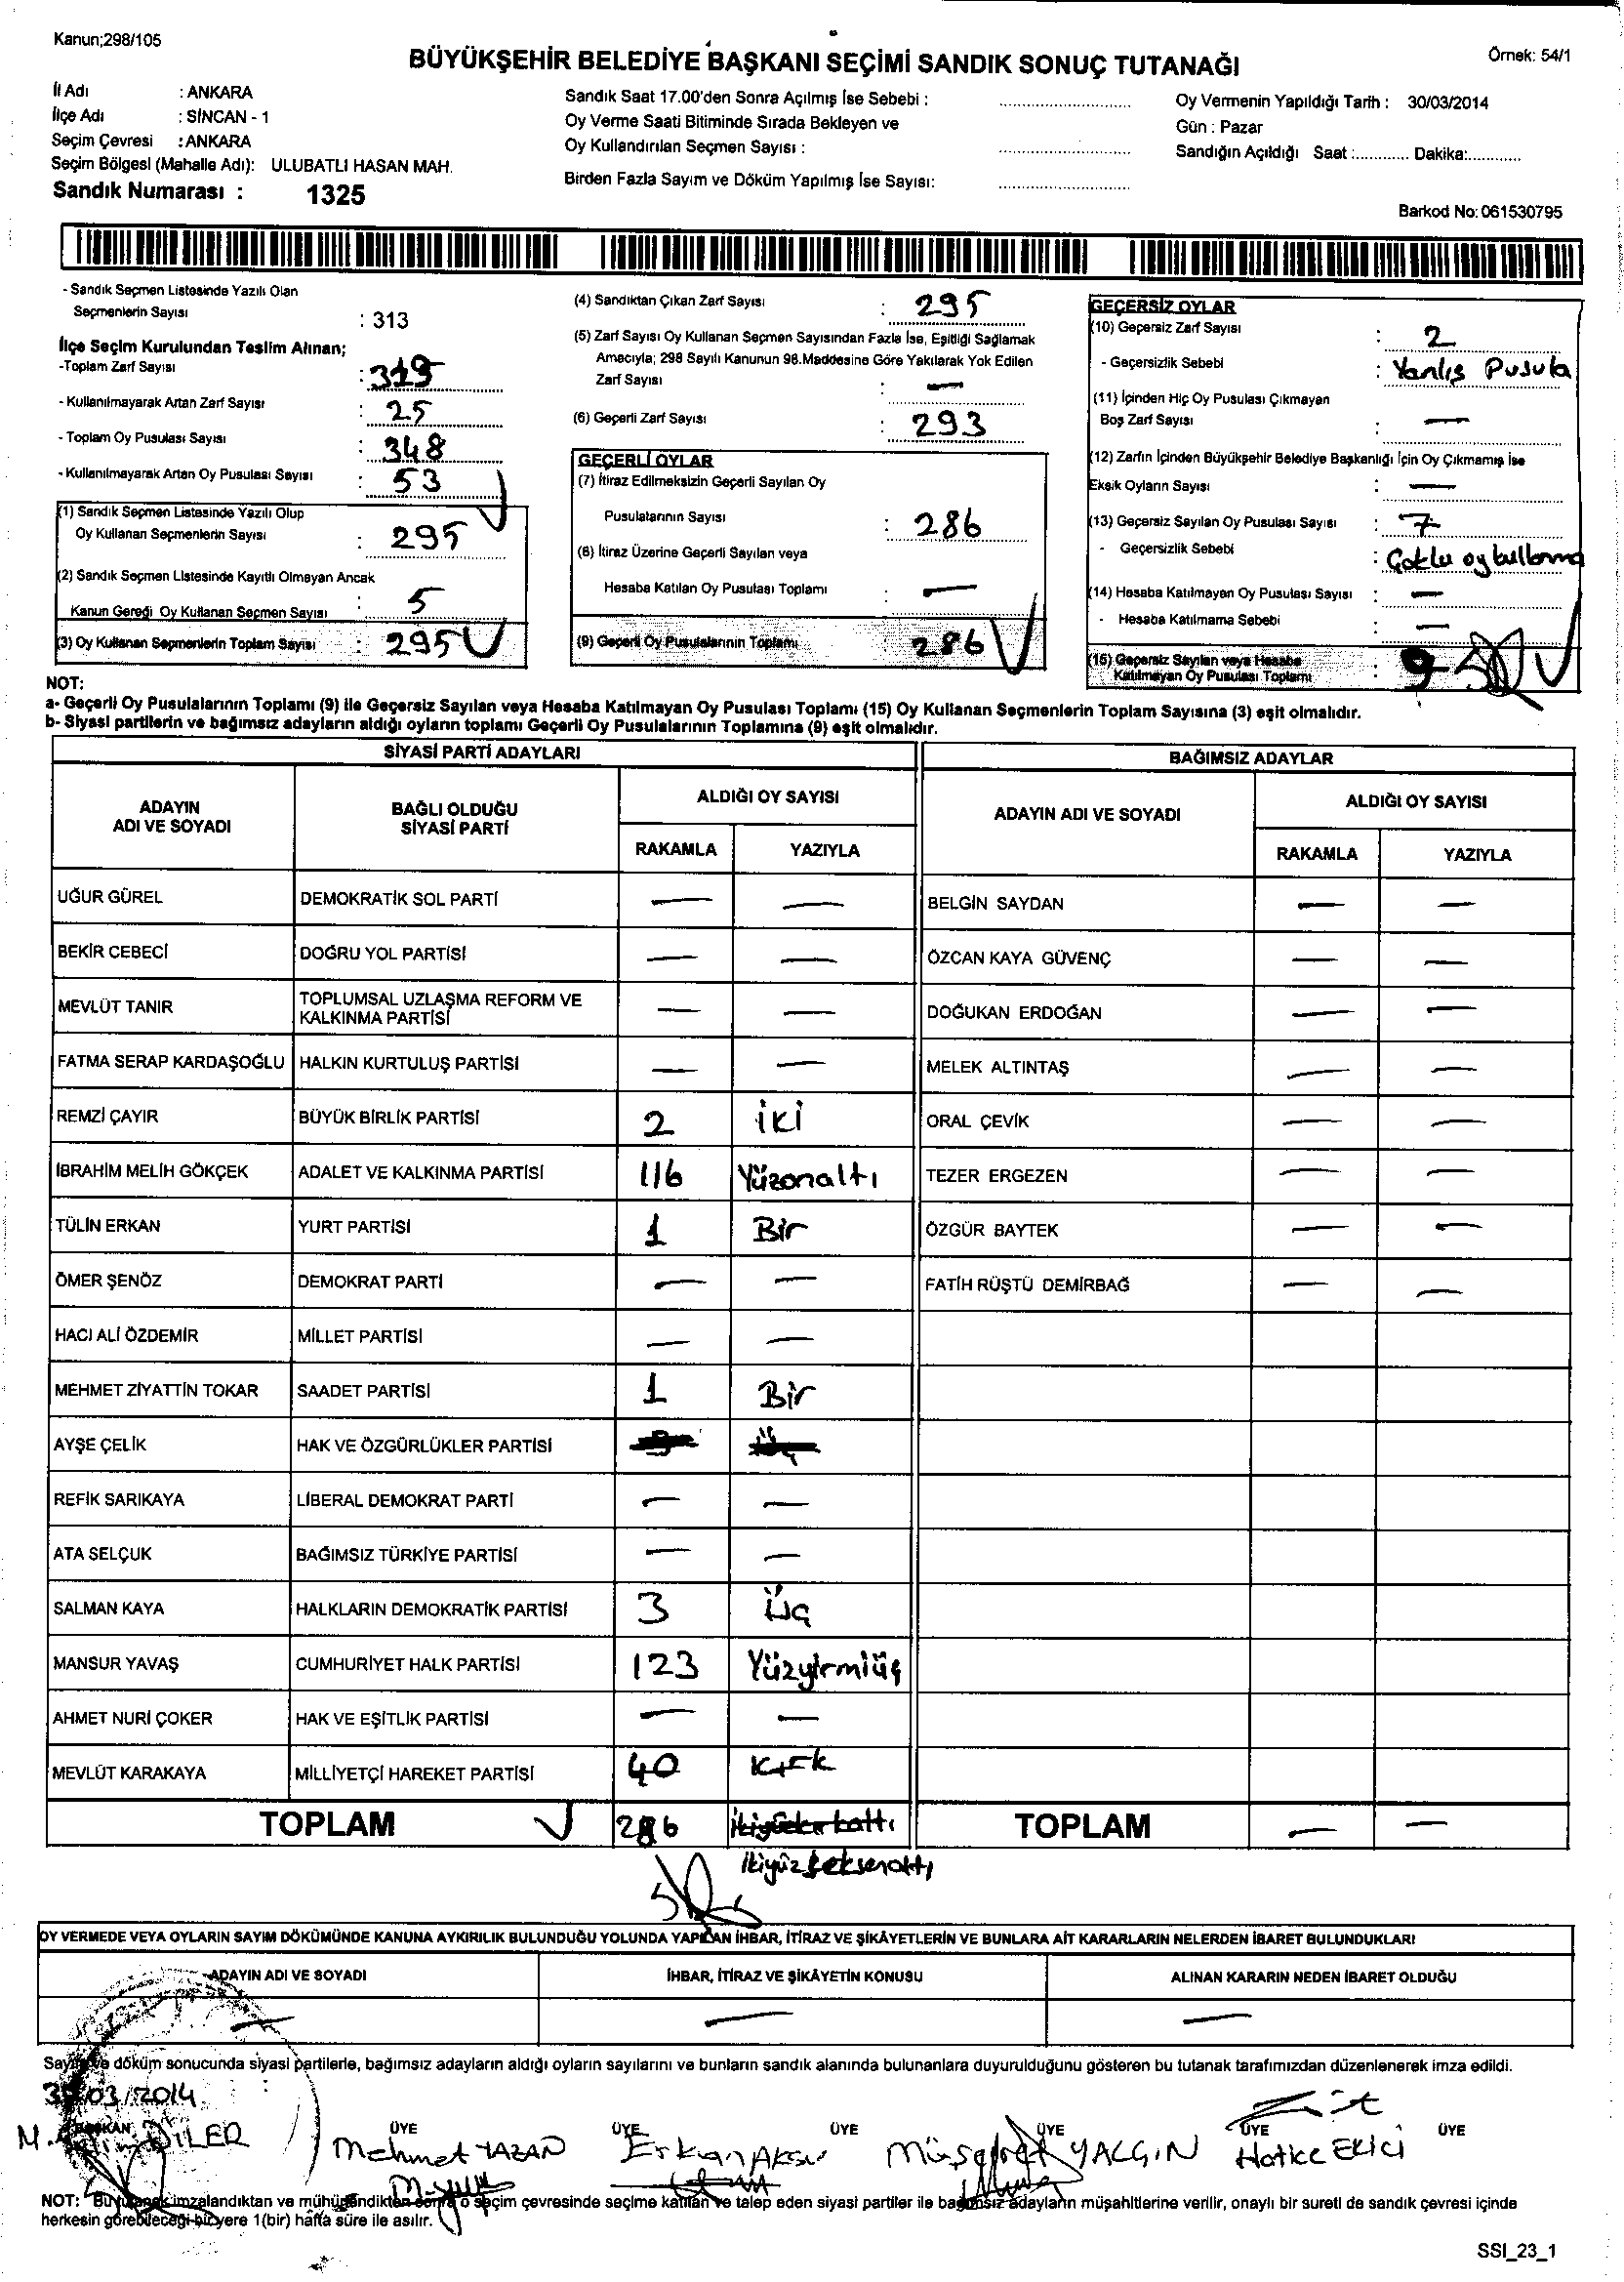 Kanun;298/105
BÜYÜKŞEHİR BELEDİYE BAŞKANI SEÇİMİ SANDIK SONUÇ TUTANAĞI
Örnek: 54/1
İl Adı : ANKARA
İlçe Adı : SİNCAN - 1
Seçim Çevresi : ANKARA
Seçim Bölgesi (Mahalle Adı): ULUBATLI HASAN MAH.
Sandık Numarası : 1325
Sandık Saat 17.00'den Sonra Açılmış İse Sebebi :
Oy Verme Saati Bitiminde Sırada Bekleyen ve
Oy Kullandırılan Seçmen Sayısı :
Birden Fazla Sayım ve Döküm Yapılmış İse Sayısı:
Oy Vermenin Yapıldığı Tarih : 30/03/2014
Gün : Pazar
Sandığın Açıldığı Saat :............ Dakika:............
Barkod No: 061530795
- Sandık Seçmen Listesinde Yazılı Olan
Seçmenlerin Sayısı : 313
İlçe Seçim Kurulundan Teslim Alınan;
-Toplam Zarf Sayısı :
- Kullanılmayarak Artan Zarf Sayısı : 25
- Toplam Oy Pusulası Sayısı : 348
- Kullanılmayarak Artan Oy Pusulası Sayısı : 53
(1) Sandık Seçmen Listesinde Yazılı Olup
Oy Kullanan Seçmenlerin Sayısı : 295
(2) Sandık Seçmen Listesinde Kayıtlı Olmayan Ancak
Kanun Gereği Oy Kullanan Seçmen Sayısı : 5
(3) Oy Kullanan Seçmenlerin Toplam Sayısı : 295
(4) Sandıktan Çıkan Zarf Sayısı : 295
(5) Zarf Sayısı Oy Kullanan Seçmen Sayısından Fazla İse, Eşitliği Sağlamak
Amacıyla; 298 Sayılı Kanunun 98.Maddesine Göre Yakılarak Yok Edilen
Zarf Sayısı : —
(6) Geçerli Zarf Sayısı : 293
GEÇERLİ OYLAR
(7) İtiraz Edilmeksizin Geçerli Sayılan Oy
Pusulalarının Sayısı : 286
(8) İtiraz Üzerine Geçerli Sayılan veya
Hesaba Katılan Oy Pusulası Toplamı : —
(9) Geçerli Oy Pusulalarının Toplamı : 286
GEÇERSİZ OYLAR
(10) Geçersiz Zarf Sayısı : 2
- Geçersizlik Sebebi : Yanlış Pusula
(11) İçinden Hiç Oy Pusulası Çıkmayan
Boş Zarf Sayısı : —
(12) Zarfın İçinden Büyükşehir Belediye Başkanlığı İçin Oy Çıkmamış İse
Eksik Oyların Sayısı : —
(13) Geçersiz Sayılan Oy Pusulası Sayısı : 7
- Geçersizlik Sebebi : Çoklu oy kullanma
(14) Hesaba Katılmayan Oy Pusulası Sayısı : —
- Hesaba Katılmama Sebebi : —
(15) Geçersiz Sayılan veya Hesaba
Katılmayan Oy Pusulası Toplamı : 9
NOT:
a- Geçerli Oy Pusulalarının Toplamı (9) ile Geçersiz Sayılan veya Hesaba Katılmayan Oy Pusulası Toplamı (15) Oy Kullanan Seçmenlerin Toplam Sayısına (3) eşit olmalıdır.
b- Siyasi partilerin ve bağımsız adayların aldığı oyların toplamı Geçerli Oy Pusulalarının Toplamına (9) eşit olmalıdır.
SİYASİ PARTİ ADAYLARI
ADAYIN ADI VE SOYADI BAĞLI OLDUĞU SİYASİ PARTİ ALDIĞI OY SAYISI
RAKAMLA YAZIYLA
UĞUR GÜREL DEMOKRATİK SOL PARTİ — —
BEKİR CEBECİ DOĞRU YOL PARTİSİ — —
MEVLÜT TANIR TOPLUMSAL UZLAŞMA REFORM VE KALKINMA PARTİSİ — —
FATMA SERAP KARDAŞOĞLU HALKIN KURTULUŞ PARTİSİ — —
REMZİ ÇAYIR BÜYÜK BİRLİK PARTİSİ 2 iki
İBRAHİM MELİH GÖKÇEK ADALET VE KALKINMA PARTİSİ 116 Yüzonaltı
TÜLİN ERKAN YURT PARTİSİ 1 Bir
ÖMER ŞENÖZ DEMOKRAT PARTİ — —
HACI ALİ ÖZDEMİR MİLLET PARTİSİ — —
MEHMET ZİYATTİN TOKAR SAADET PARTİSİ 1 Bir
AYŞE ÇELİK HAK VE ÖZGÜRLÜKLER PARTİSİ
REFİK SARIKAYA LİBERAL DEMOKRAT PARTİ — —
ATA SELÇUK BAĞIMSIZ TÜRKİYE PARTİSİ — —
SALMAN KAYA HALKLARIN DEMOKRATİK PARTİSİ 3 Üç
MANSUR YAVAŞ CUMHURİYET HALK PARTİSİ 123 Yüzyirmiüç
AHMET NURİ ÇOKER HAK VE EŞİTLİK PARTİSİ — —
MEVLÜT KARAKAYA MİLLİYETÇİ HAREKET PARTİSİ 40 Kırk
TOPLAM 286
ikiyüzseksenaltı
BAĞIMSIZ ADAYLAR
ADAYIN ADI VE SOYADI ALDIĞI OY SAYISI
RAKAMLA YAZIYLA
BELGİN SAYDAN — —
ÖZCAN KAYA GÜVENÇ — —
DOĞUKAN ERDOĞAN — —
MELEK ALTINTAŞ — —
ORAL ÇEVİK — —
TEZER ERGEZEN — —
ÖZGÜR BAYTEK — —
FATİH RÜŞTÜ DEMİRBAĞ — —
TOPLAM — —
OY VERMEDE VEYA OYLARIN SAYIM DÖKÜMÜNDE KANUNA AYKIRILIK BULUNDUĞU YOLUNDA YAPILAN İHBAR, İTİRAZ VE ŞİKÂYETLERİN VE BUNLARA AİT KARARLARIN NELERDEN İBARET BULUNDUKLARI
ADAYIN ADI VE SOYADI İHBAR, İTİRAZ VE ŞİKÂYETİN KONUSU ALINAN KARARIN NEDEN İBARET OLDUĞU
— — —
Sayım ve döküm sonucunda siyasi partilerle, bağımsız adayların aldığı oyların sayılarını ve bunların sandık alanında bulunanlara duyurulduğunu gösteren bu tutanak tarafımızdan düzenlenerek imza edildi.
30/03/2014
BAŞKAN ÜYE ÜYE ÜYE ÜYE ÜYE ÜYE
M. DİLER Mehmet YAZAN Erkan AKSU Müşerref YALÇIN Hatice EKİCİ
NOT: Bu tutanak imzalandıktan ve mühürlendikten sonra o seçim çevresinde seçime katılan ve talep eden siyasi partiler ile bağımsız adayların müşahitlerine verilir, onaylı bir sureti de sandık çevresi içinde
herkesin görebileceği bir yere 1(bir) hafta süre ile asılır.
SSI_23_1